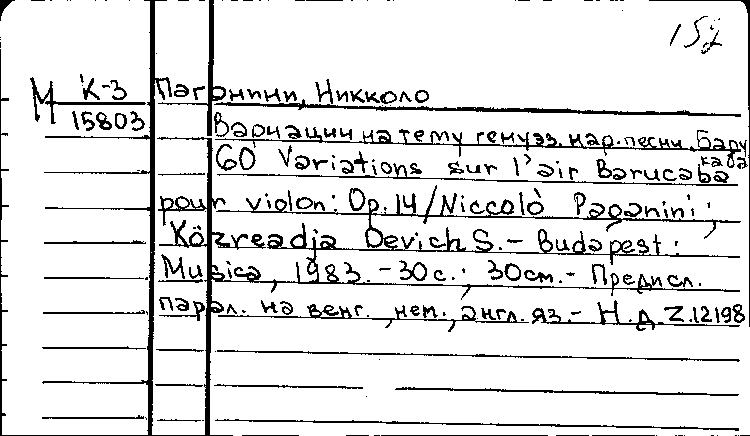 М К-3 Паганини, Никколо
15803 Вариации на тему генуэз. нар. песни Бару
каба
60 Variations sur l'air Barucaba
pour violon: Op. 14 / Niccolò Paganini ;
Közreadja Devich S. - Budapest :
Musica, 1983. - 30 с. ; 30 см. - Предисл.
парал. на венг., нем., англ. яз. - Н. д. Z. 12198